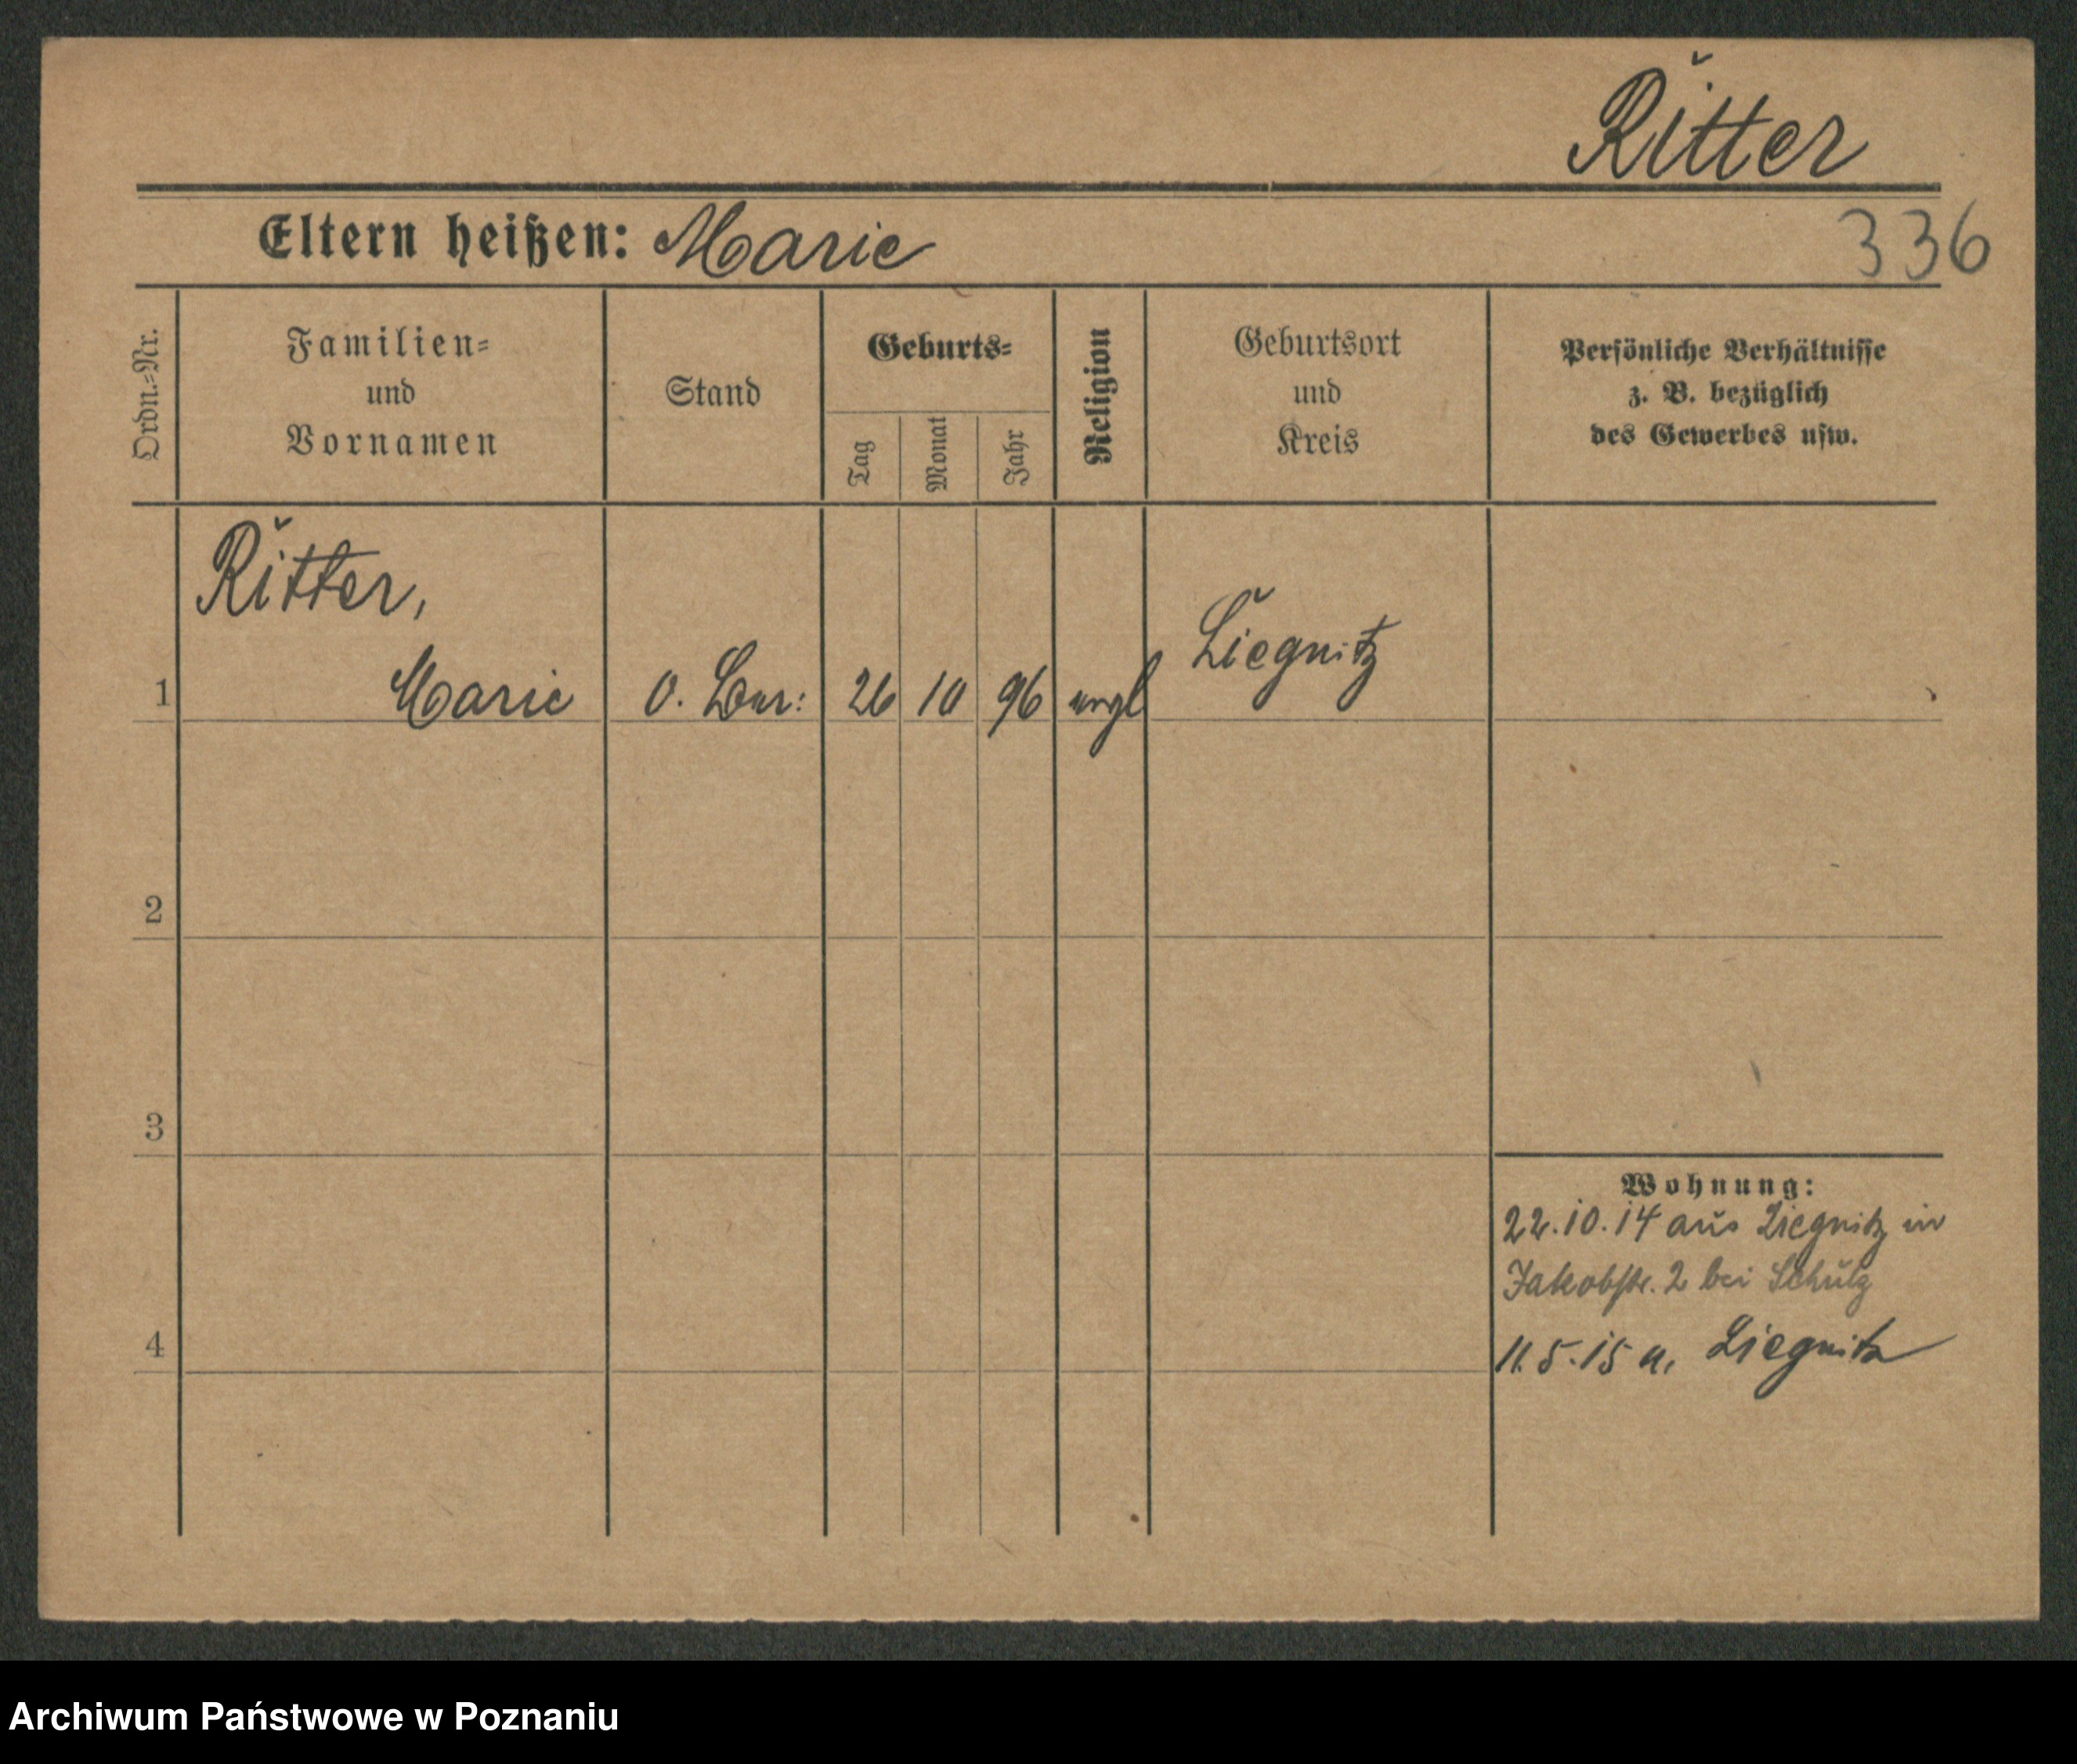 Ritter
Eltern heißen: Marie
336
Ordn.=Nr.
Familien=
und
Vornamen
Stand
Geburts=
Tag
Monat
Jahr
Religion
Geburtsort
und
Kreis
Persönliche Verhältnisse
z. B. bezüglich
des Gewerbes usw.
Ritter,
1 Marie O. 26 10 96 Liegnitz
2
3
Wohnung:
22.10.14 aus Liegnitz in
Jakobstr. 2 bei Schulz
4
11.5.15 n. Liegnitz
Archiwum Państwowe w Poznaniu